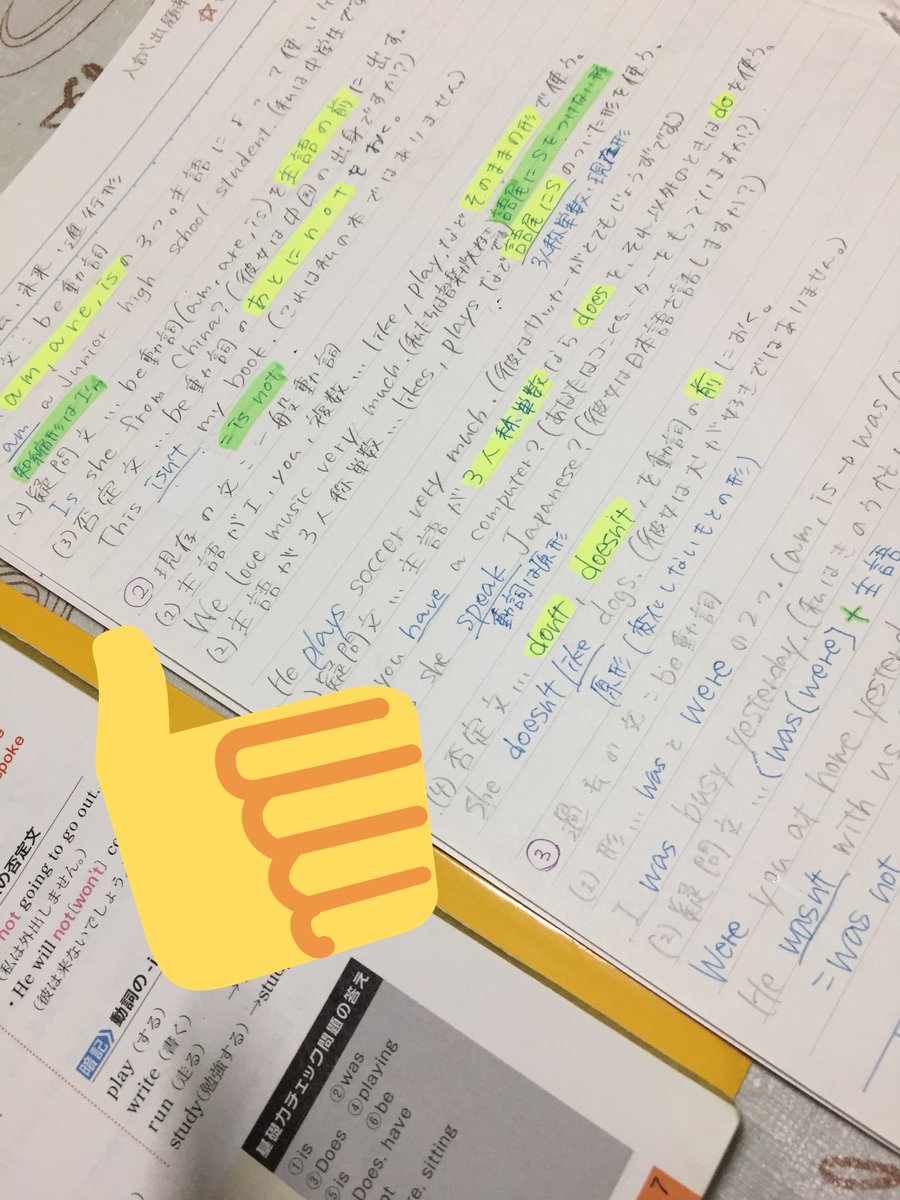 入試出題率
☆
・未来・進行形
文:be動詞
am, are, isの3つ。主語によって使い
am a junior high school student.(私は中学生です
短縮形はI'm
(2)疑問文…be動詞(am, are, is)を主語の前に出す。
Is she from China?(彼女は中国の出身ですか?)
(3)否定文…be動詞のあとにnotをおく。
This isn't my book.(これは私の本ではありません)
=is not
②現在の文:一般動詞
(1)主語がI, you, 複数…like, playなどそのままの形で使う。
語尾にSをつけない形
We love music very much.
(2)主語が3人称単数…likes, playsなど語尾にSのついた形を使う。
3人称単数現在形
He plays soccer very much.(彼はサッカーがとてもじょうずです)
疑問文…主語が3人称単数ならdoesを、それ以外のときはdoを使う。
you have a computer?(あなたはコンピューターをもっていますか?)
she speak Japanese?(彼女は日本語を話しますか?)
動詞は原形
(4)否定文…don't, doesn'tを動詞の前におく。
She doesn't like dogs.(彼女は犬が好きではありません)
原形(変化しないもとの形)
③過去の文:be動詞
(1)形…wasとwereの2つ。(am, is→was
I was busy yesterday.(私はきのう忙
(2)疑問文…(was(were)+主語
Were you at home yesterd
He wasn't with us
=was not
spoke
の否定文
not going to go out.
(私は外出しません。)
・He will not[won't] co
(彼は来ないでしょう
暗記 動詞の-i
play(する)
write(書く)
run(走る)
study(勉強する)→stu
基礎力チェック問題の答え
①is ②was
③Does ④playing
⑤is ⑥be
Does, have
sitting
7